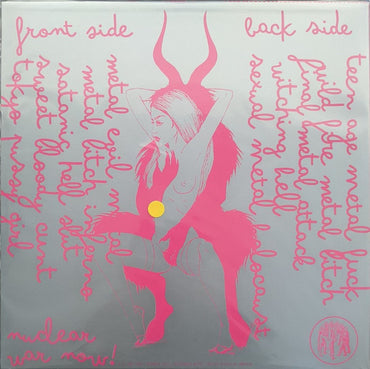 front side
metal evil metal
metal bitch inferno
satanic hell slut
sweet bloody cunt
tokyo pussy girl
back side
teen age metal fuck
wild fire metal bitch
final metal attack
witching hell
sexual metal holocaust
nuclear
war now!